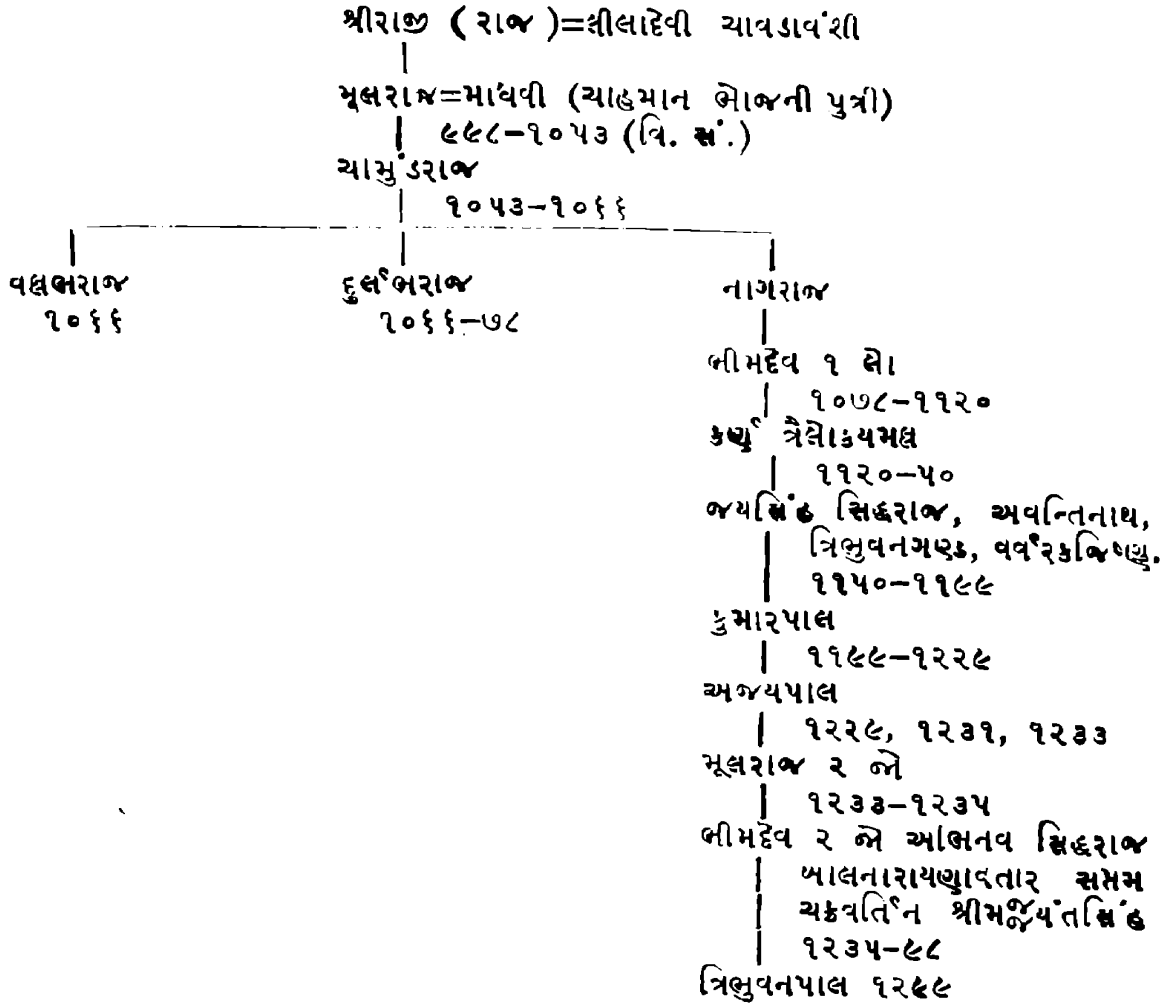 શ્રીરાજી ( રાજ )=લીલાદેવી ચાવડાવંશી
મૂલરાજ=માધવી (ચાહમાન ભોજની પુત્રી)
૯૯૮–૧૦૫૩ (વિ. સં.)
ચામુંડરાજ
૧૦૫૩–૧૦૬૬
વલ્લભરાજ દુર્લભરાજ નાગરાજ
૧૦૬૬ ૧૦૬૬–૭૮
ભીમદેવ ૧ લો
૧૦૭૮–૧૧૨૦
કર્ણ ત્રૈલોકયમલ્લ
૧૧૨૦–૫૦
જયસિંહ સિદ્ધરાજ, અવન્તિનાથ,
ત્રિભુવનગણ્ડ, વર્વરકજિષ્ણુ.
૧૧૫૦–૧૧૯૯
કુમારપાલ
૧૧૯૯–૧૨૨૯
અજયપાલ
૧૨૨૯, ૧૨૩૧, ૧૨૩૩
મૂલરાજ ૨ જો
૧૨૩૩–૧૨૩૫
ભીમદેવ ૨ જો અભિનવ સિદ્ધરાજ
બાલનારાયણાવતાર સપ્તમ
ચક્રવર્તિન શ્રીમજ્જયંતસિંહ
૧૨૩૫–૯૮
ત્રિભુવનપાલ ૧૨૯૯